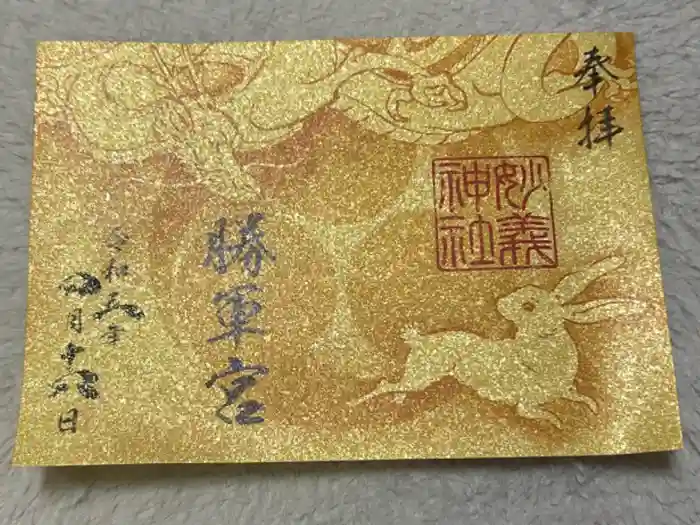 奉拝
妙義
神社
勝軍宮
令和五年
月十日